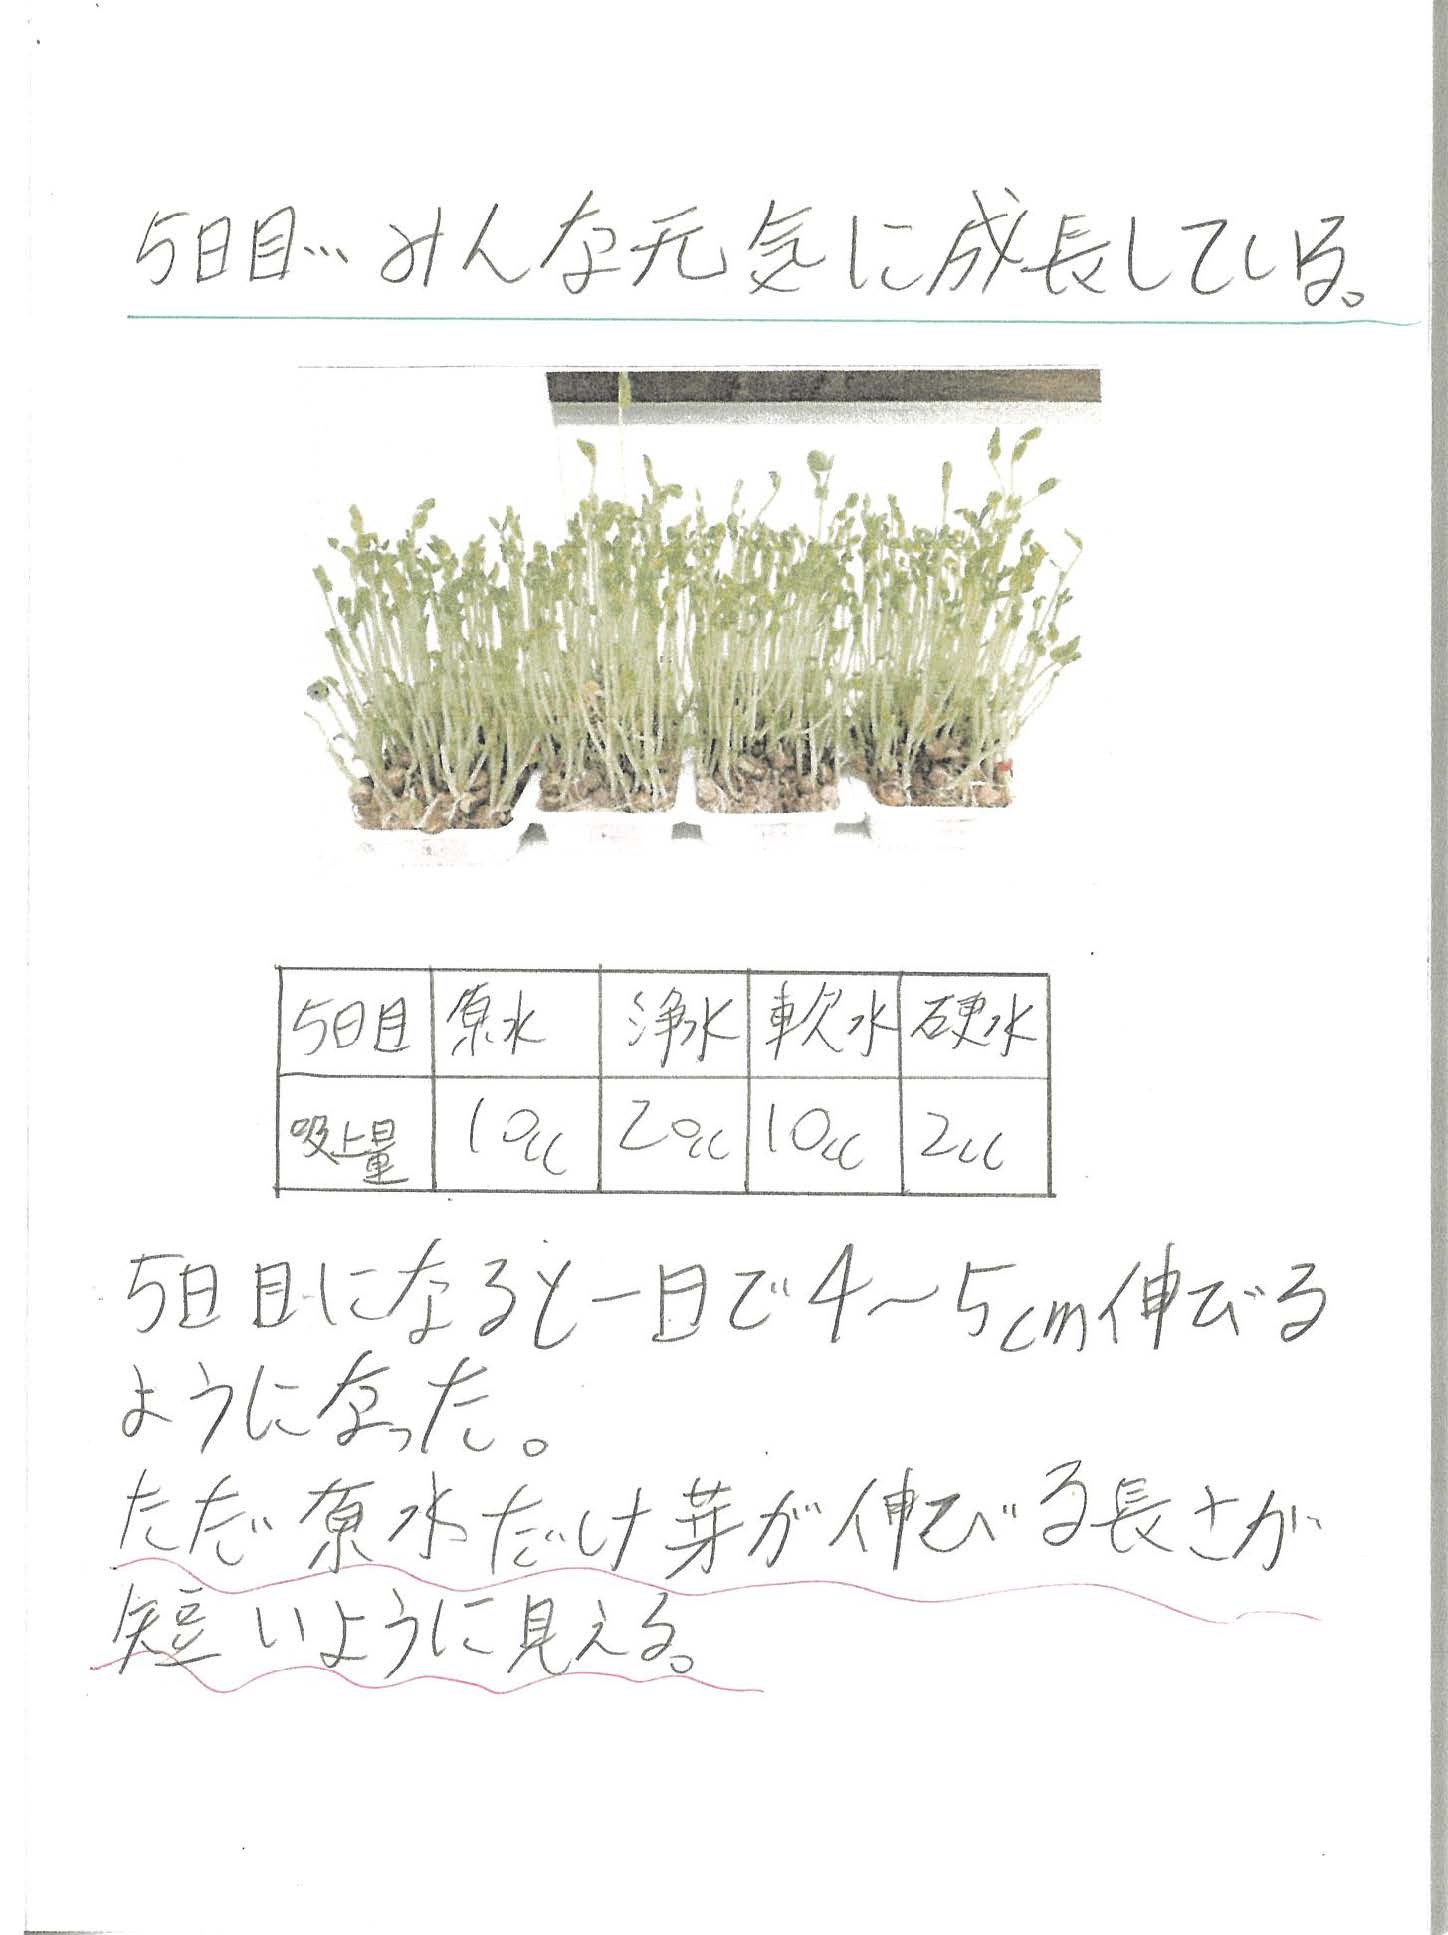 5日目…みんな元気に成長している。
5日目 原水 浄水 軟水 硬水
吸上量 10cc 20cc 10cc 2cc
5日目になると一日で4〜5cm伸びる
ようになった。
ただ原水だけ芽が伸びる長さが
短いように見える。